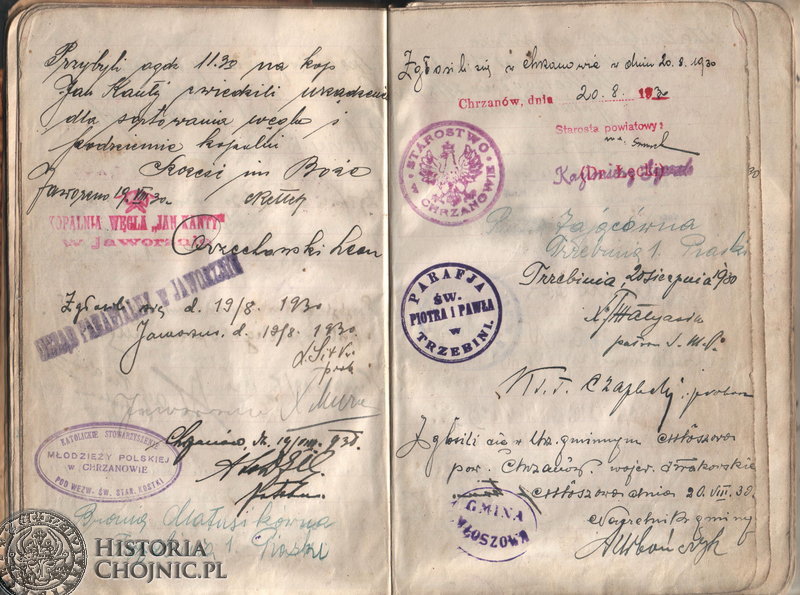 Przybyli ogdz 11.30 na kop
Jan Kanty zwiedzili urządzenie
dla sortowania węgla i
podziemie kopalni
Szczęść im Boże
Jaworzno 19.VIII.30.
KOPALNIA WĘGLA „JAN KANTY”
w Jaworznie
Orzechowski Leon
URZĄD PARAFIALNY W JAWORZNIE
Zgłosili się d. 19/8. 1930
Jaworzno. d. 19/8. 1930
Jaworznie X
Chrzanów dn. 19/VIII. 930.
KATOLICKIE STOWARZYSZENIE
MŁODZIEŻY POLSKIEJ
w CHRZANOWIE
POD WEZW. ŚW. STAN. KOSTKI
Bronia Matusikówna
1. Piaski
HISTORIA
CHOJNIC.PL
Zgłosili się w Chrzanowie w dniu 20.8.1930
Chrzanów, dnia 20.8. 1930
Starosta powiatowy:
(Dr. Łęcki)
STAROSTWO
W CHRZANOWIE
Zającówna
Trzebinia 1. Piaski
Trzebinia, 20 sierpnia 1930
PARAFJA
ŚW.
PIOTRA I PAWŁA
w
TRZEBINI.
Ks. J. Czaplicki. proboszcz
Zgłosili się w Urz. gminnym Młoszowa
pow. Chrzanów. wojew. Krakowskie
Młoszowa dnia 20.VIII.30.
GMINA
MŁOSZOWA
Naczelnik gminy